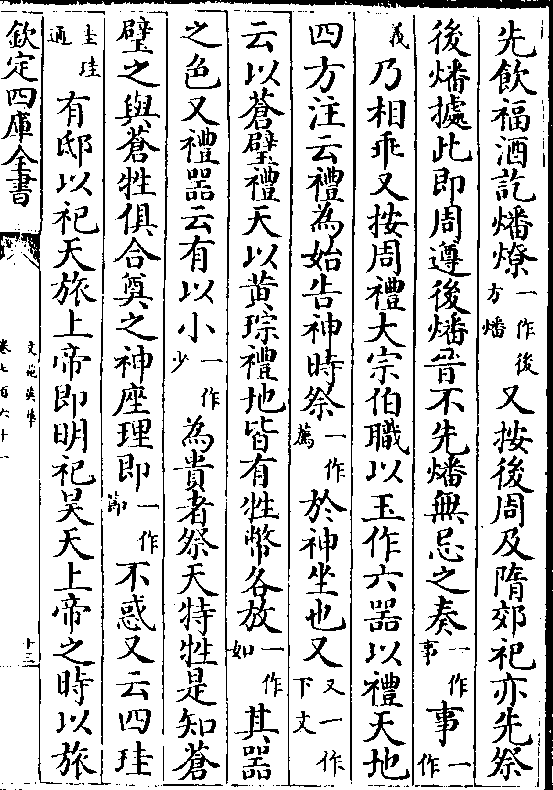 先飲福酒訖燔燎一作後方燔又按後周及隋郊祀亦先祭
後燔據此即周遵後燔晉不先燔無忌之奏一作事事一作
義乃相乖又按周禮大宗伯職以玉作六器以禮天地
四方注云禮為始告神時祭一作薦於神坐也又又一作下文
云以蒼璧禮天以黃琮禮地皆有牲幣各放一作如其器
之色又禮器云有以小一作少為貴者祭天特牲是知蒼
璧之與蒼牲俱合奠之神座理即一作節不惑又云四珪
圭珪通有邸以祀天旅上帝即明祀昊天上帝之時以旅
欽定四庫全書
文苑英華
卷七百六十一
十三